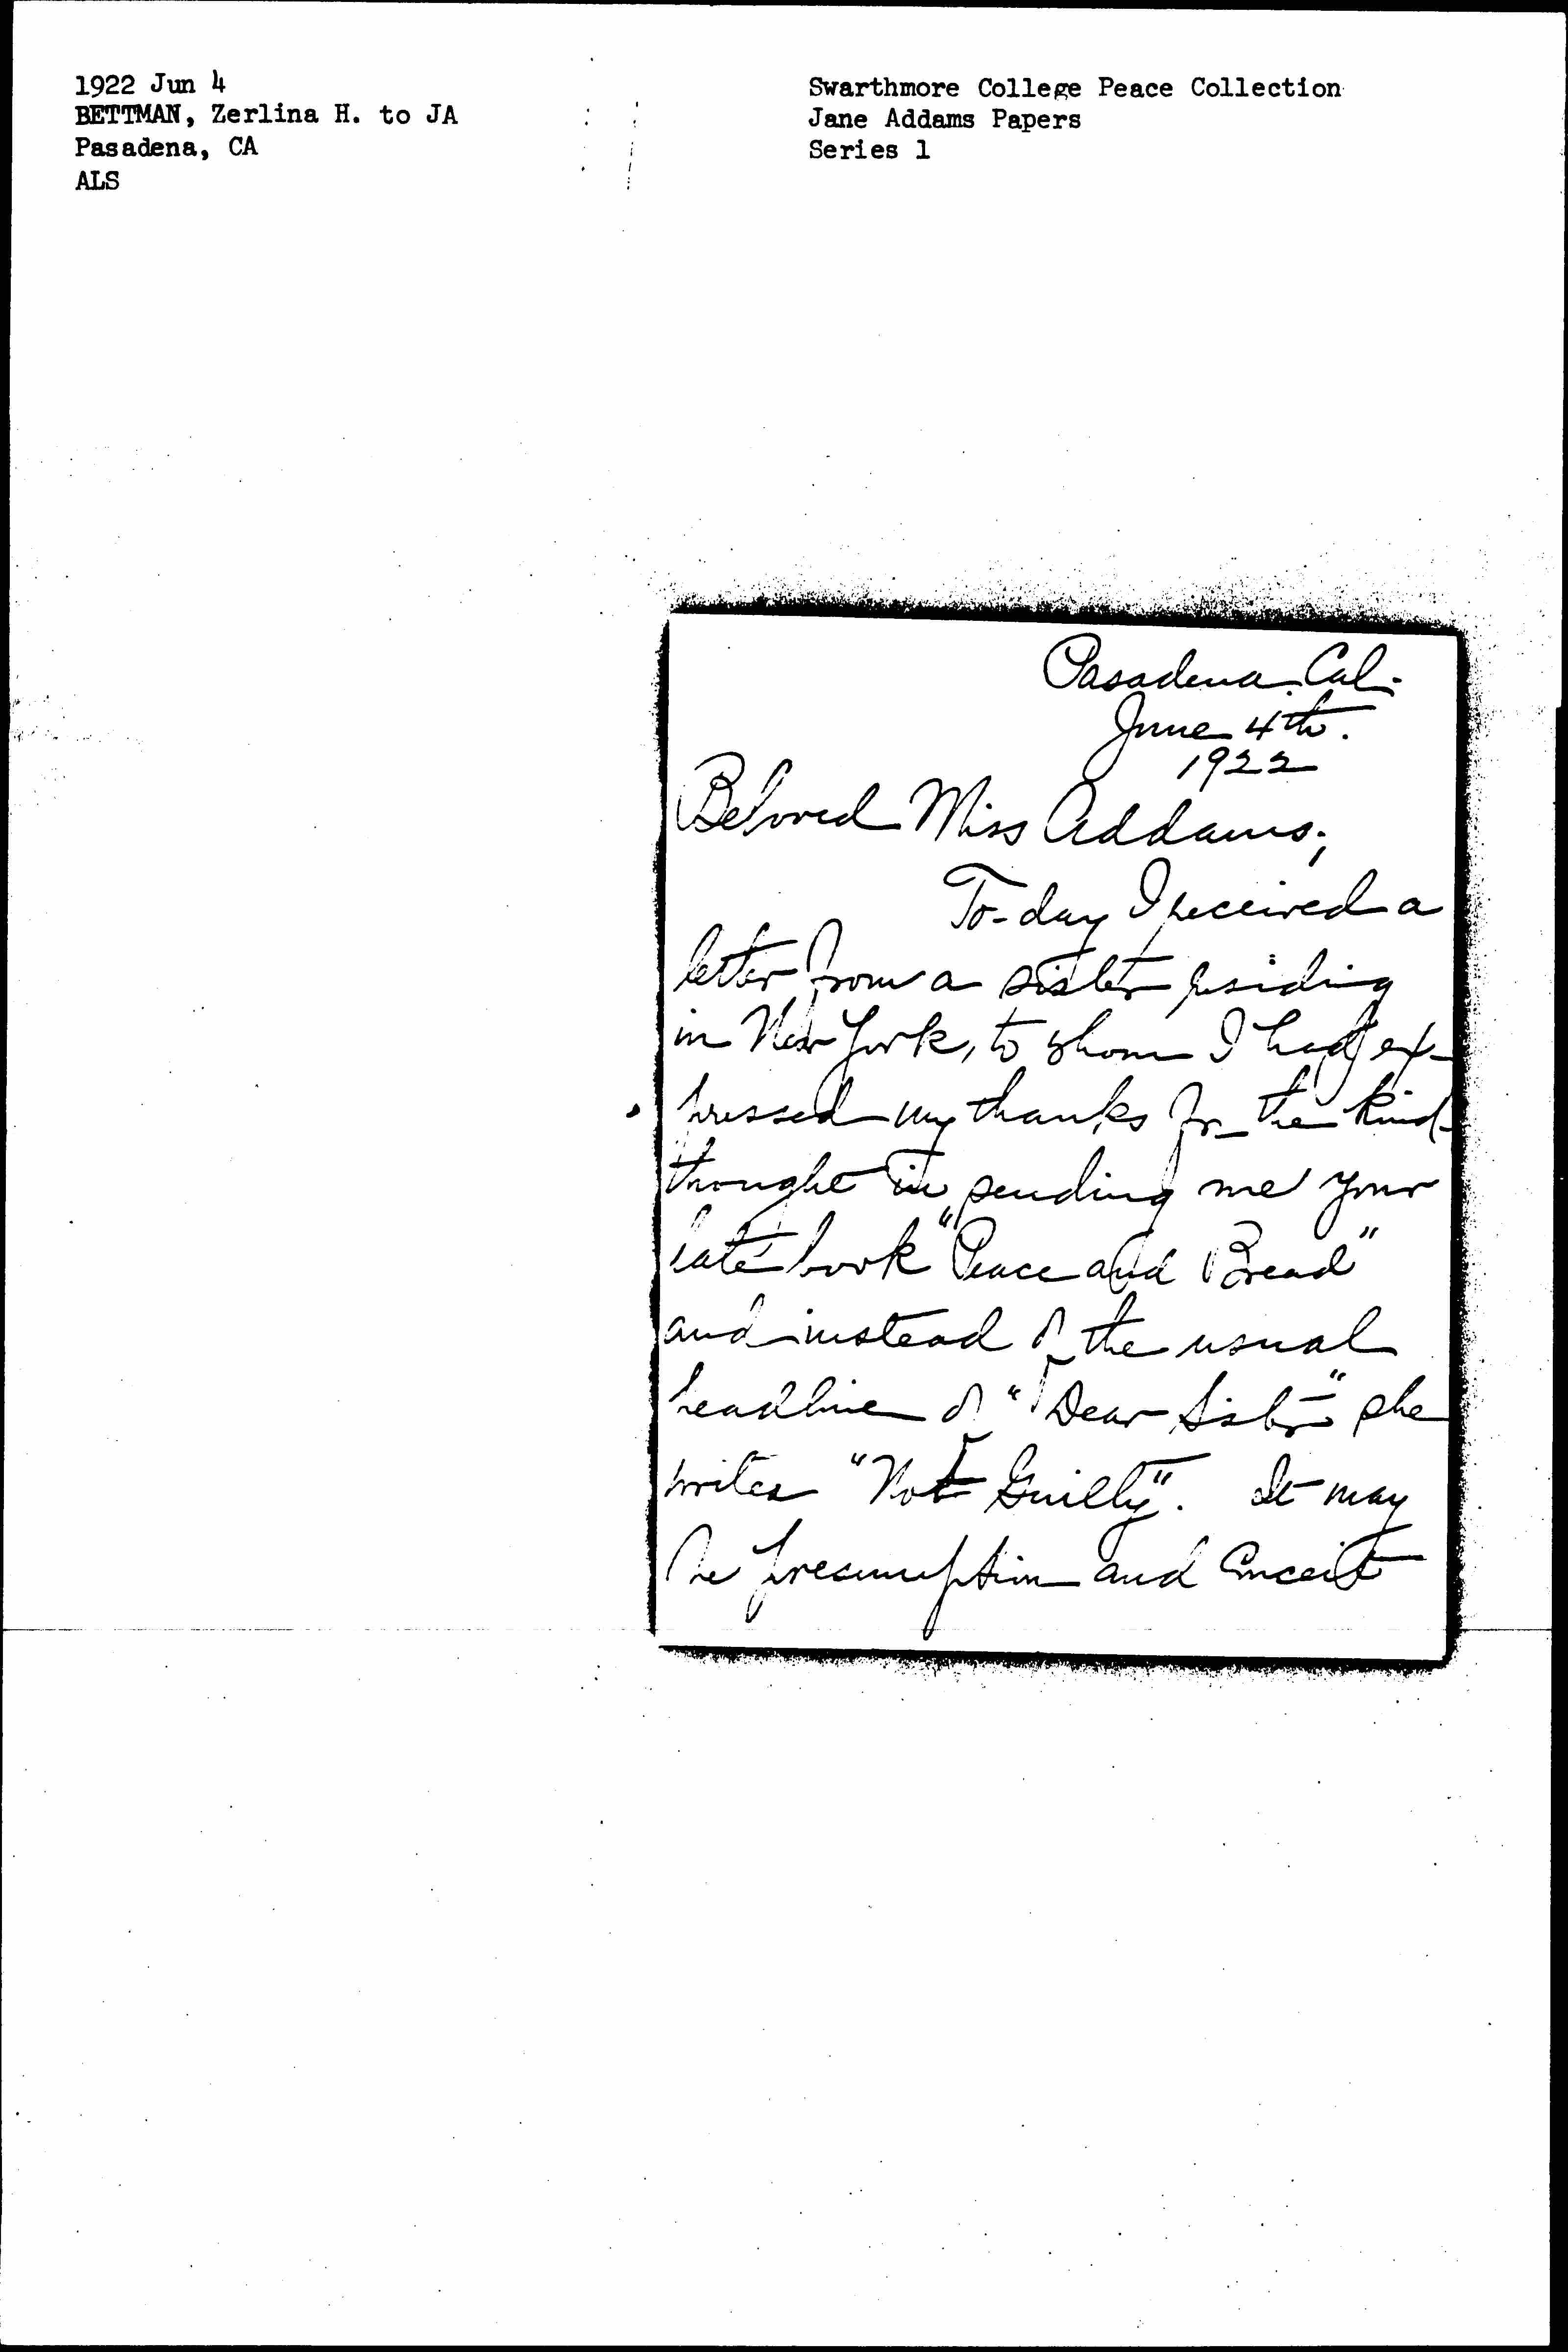 1922 Jun 4
BETTMAN, Zerlina H. to JA
Pasadena, CA
ALS
Swarthmore College Peace Collection
Jane Addams Papers
Series 1
Pasadena. Cal.
June 4th.
1922
Beloved Miss Addams;
To-day I received a
letter from a sister residing
in New York, to whom I had ex-
pressed my thanks for the kind
thought in sending me your
late book "Peace and Bread"
and instead of the usual
headline of "Dear Sister" she
writes "Not Guilty". It may
be presumption and conceit